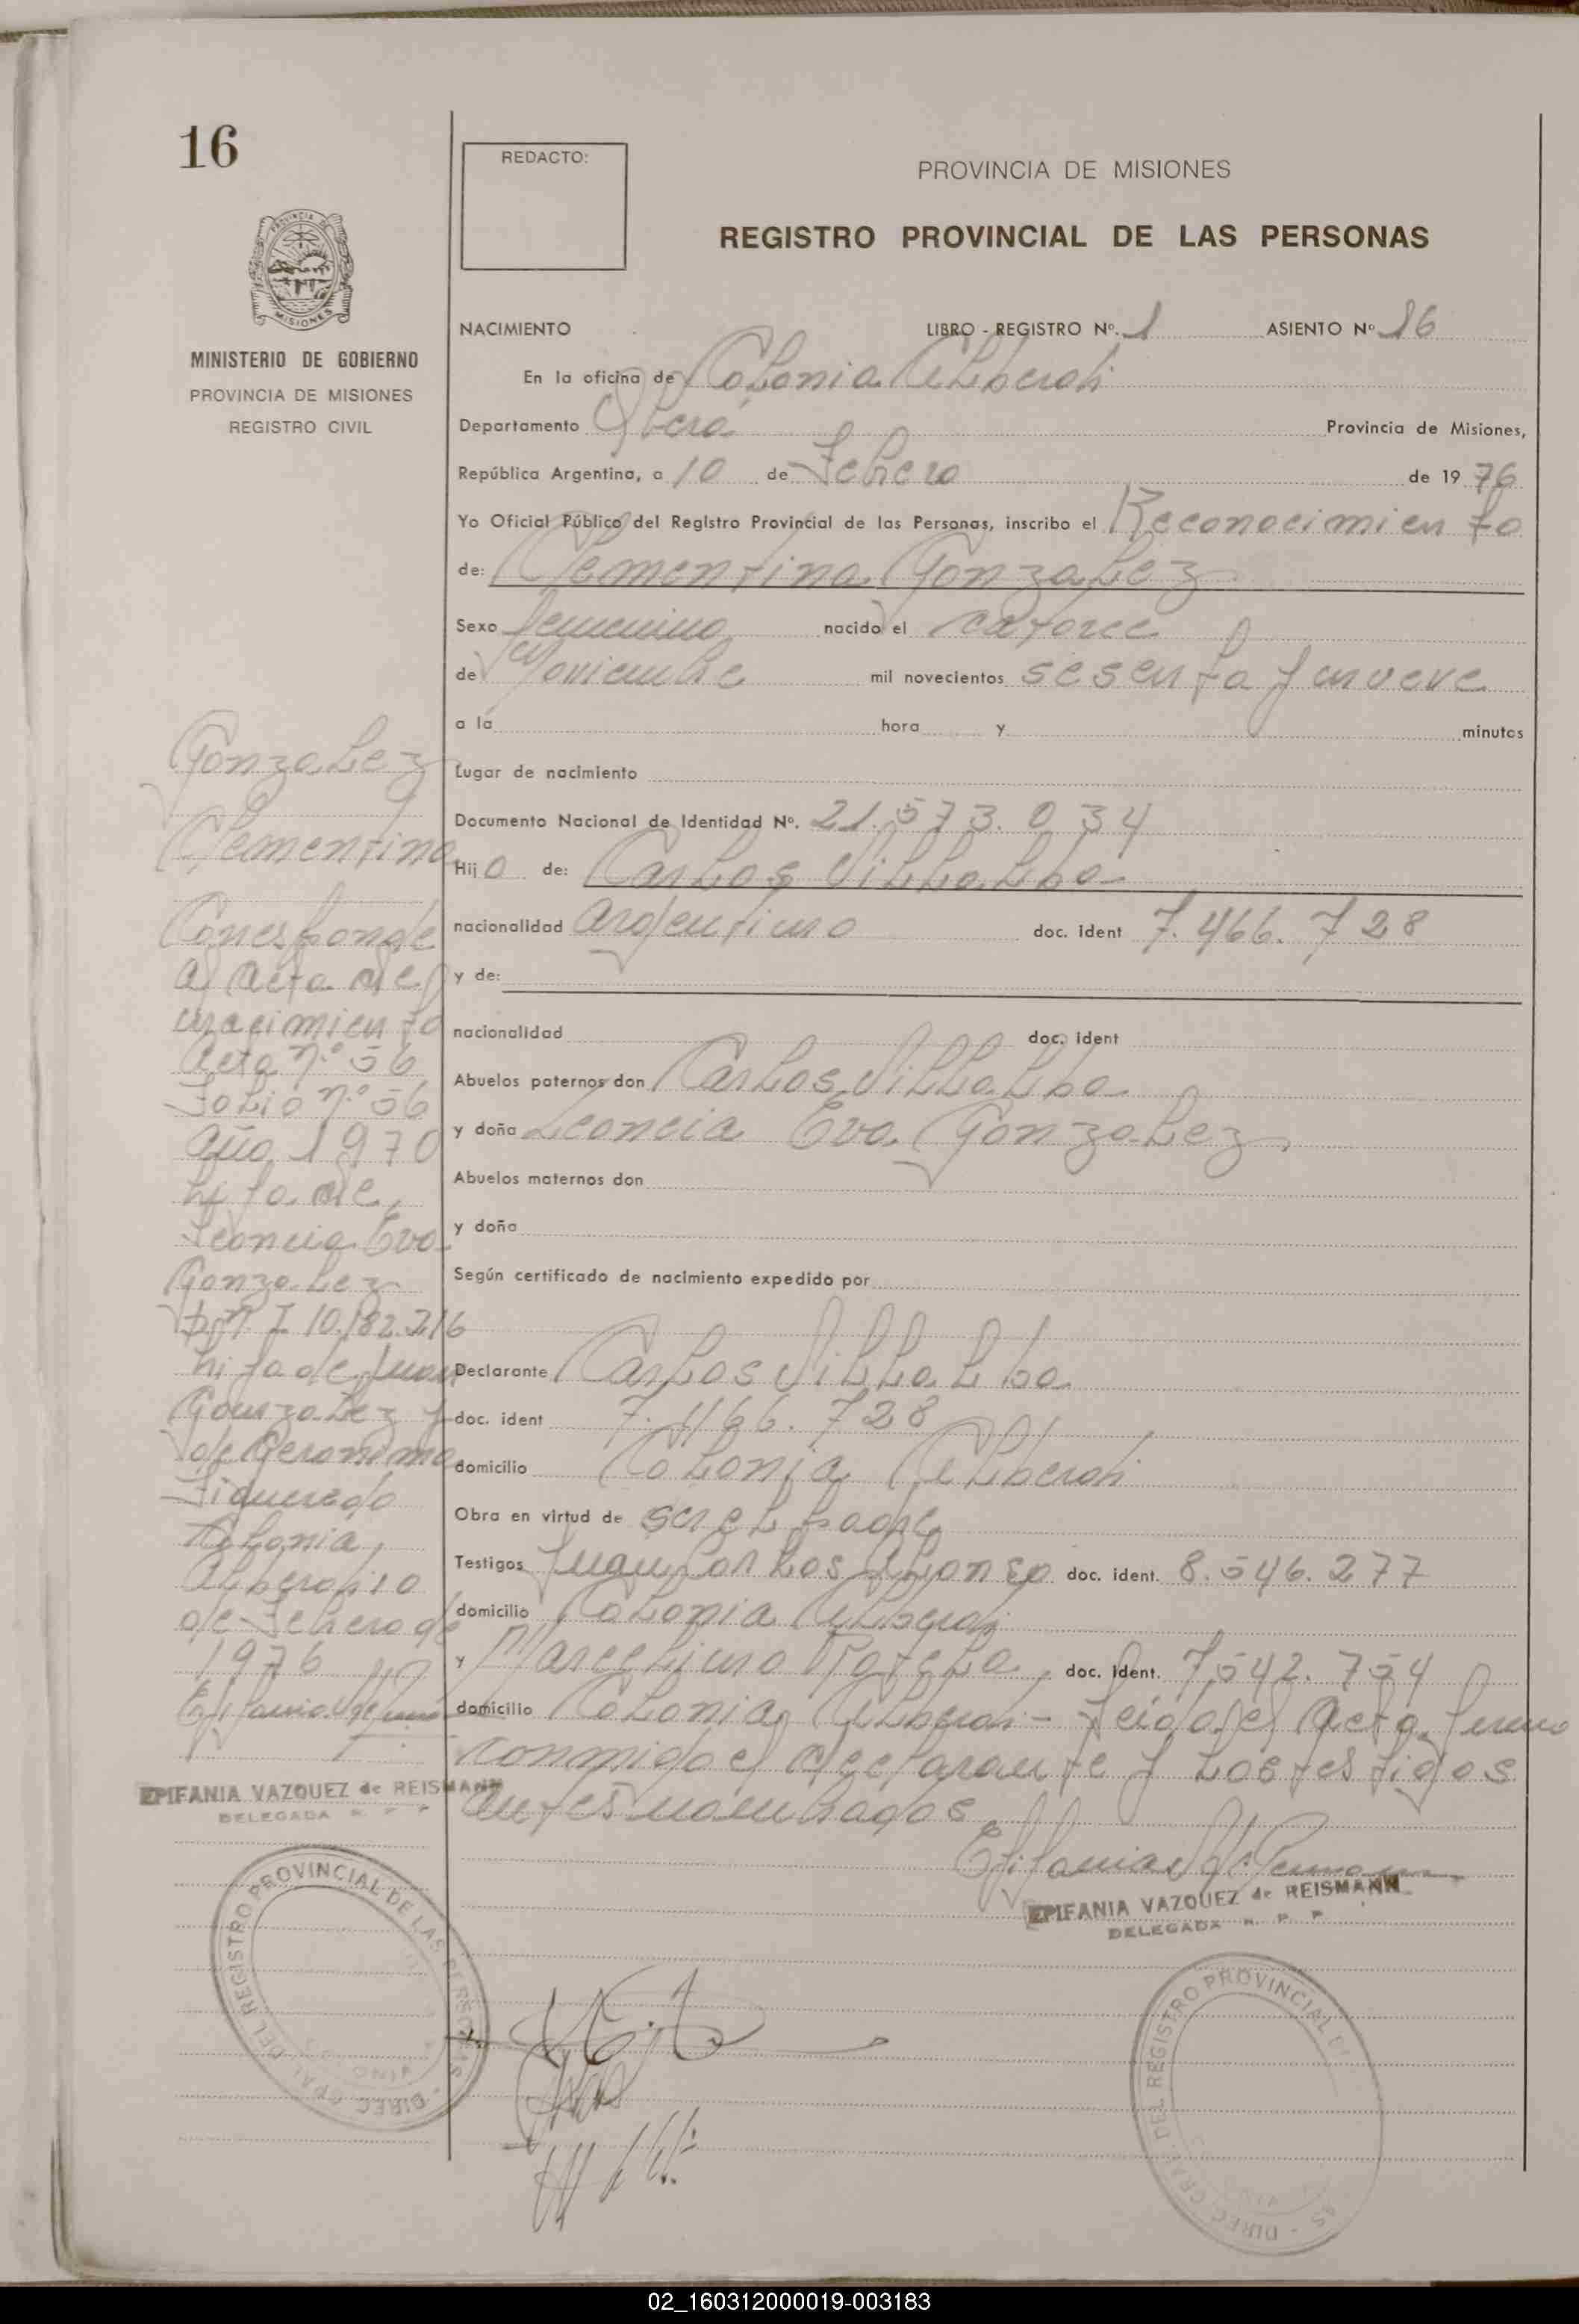 16
REDACTO:
PROVINCIA DE MISIONES
REGISTRO PROVINCIAL DE LAS PERSONAS
PROVINCIA DE
MISIONES
MINISTERIO DE GOBIERNO
PROVINCIA DE MISIONES
REGISTRO CIVIL
NACIMIENTO LIBRO - REGISTRO Nº. 1 ASIENTO Nº 16
En la oficina de Colonia Alberdi
Departamento Oberá Provincia de Misiones,
República Argentina, a 10 de Febrero de 1976
Yo Oficial Público del Registro Provincial de las Personas, inscribo el Reconocimiento
de: Clementina Gonzalez
Sexo femenino nacido el catorce
de Noviembre mil novecientos sesenta y nueve
a la hora y minutos
Lugar de nacimiento
Documento Nacional de Identidad Nº. 21.573.034
Hijo de: Carlos Villalba
nacionalidad argentino doc. ident 7.466.728
y de:
nacionalidad doc. ident
Abuelos paternos don Carlos Villalba
y doña Leoncia Eva Gonzalez
Abuelos maternos don
y doña
Según certificado de nacimiento expedido por
Declarante Carlos Villalba
doc. ident 7.466.728
domicilio Colonia Alberdi
Obra en virtud de ser el padre
Testigos Juan Carlos Alonso doc. ident. 8.546.277
domicilio Colonia Alberdi
y Marcelino doc. ident. 7.542.754
domicilio Colonia Alberdi - Leida el acta firma
conmigo el declarante y los testigos
antes nombrados
EPIFANIA VAZQUEZ de REISMANN
DELEGADA R. P. P.
Gonzalez
Clementina
Corresponde
al acta de
nacimiento
acta n.º 56
Folio n.º 56
año 1970
hija de
Leoncia Eva
Gonzalez
D.N.I 10.182.216
hija de Juan
Gonzalez y
de Geronima
Figueredo
Colonia
Alberdi 10
de Febrero de
1976
EPIFANIA VAZQUEZ de REISMANN
DELEGADA R. P. P.
DIREC. GRAL. DEL REGISTRO PROVINCIAL DE LAS PERSONAS
DIREC. GRAL. DEL REGISTRO PROVINCIAL
02_160312000019-003183